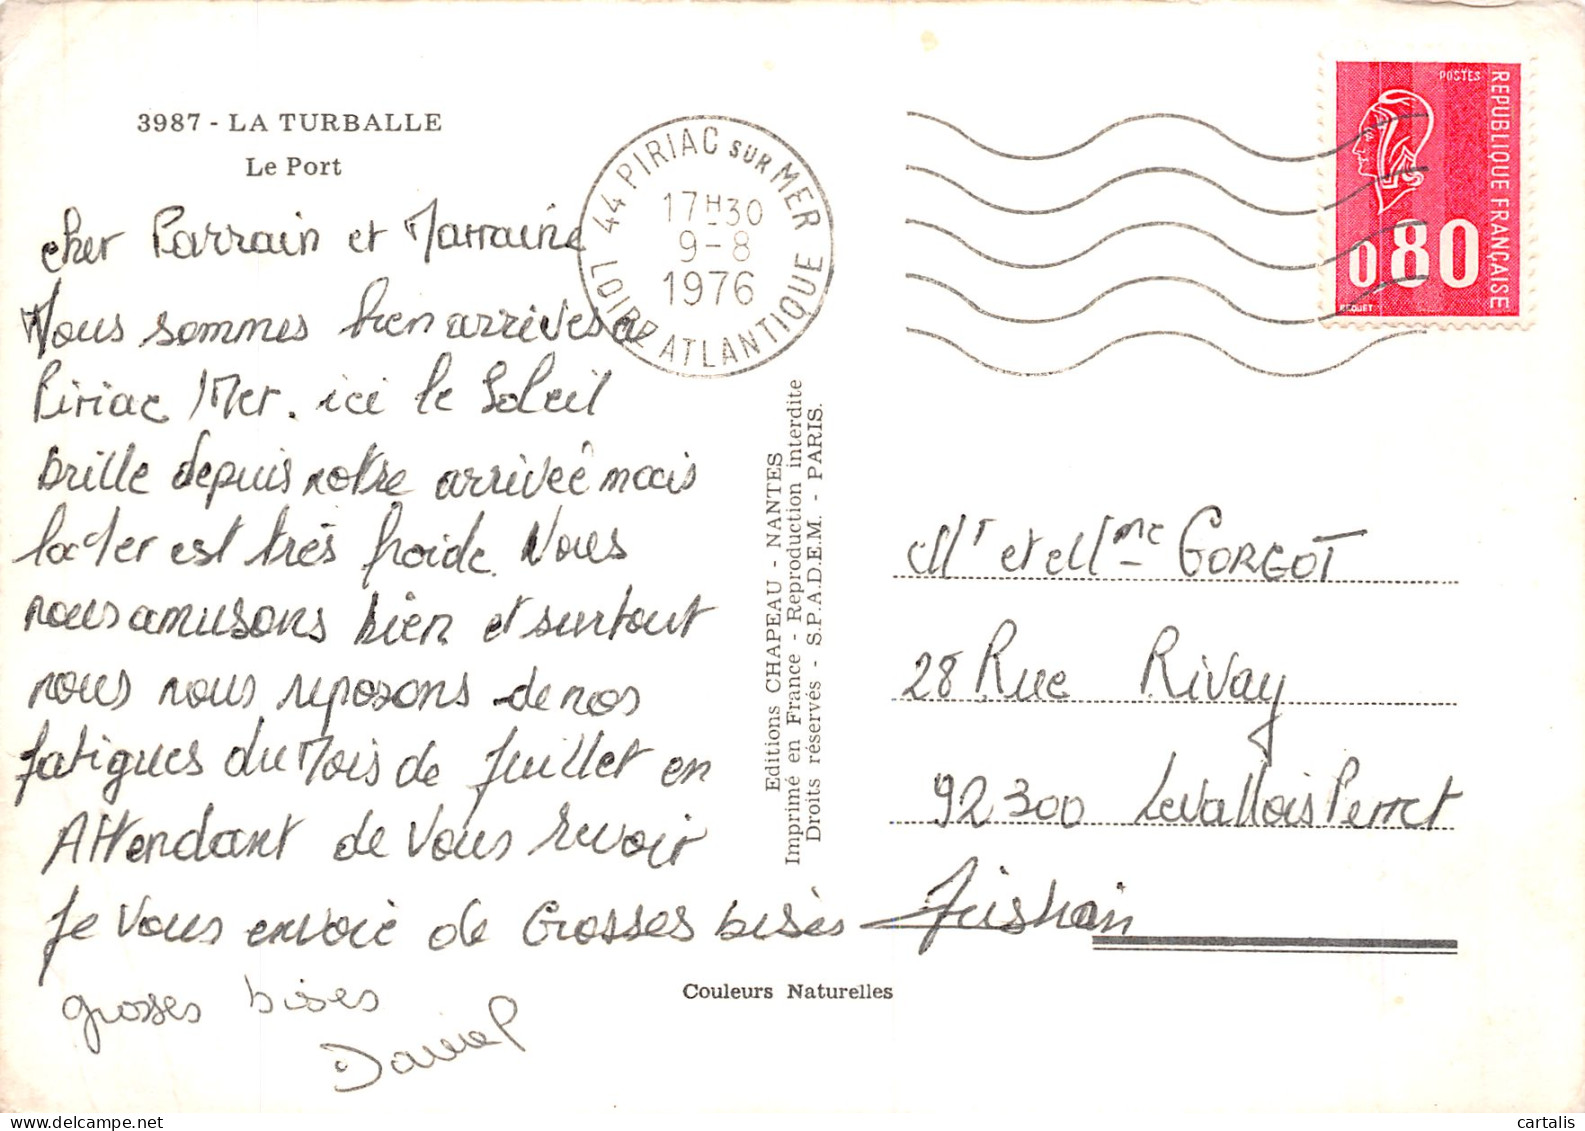 3987 - LA TURBALLE
Le Port
cher Parrain et Marraine
Nous sommes bien arrivés a
Piriac Mer. ici le Soleil
brille depuis notre arriveé mais
la Mer est très froide. Nous
nous amusons bien et surtout
nous nous reposons de nos
fatigues du Mois de Juillet en
Attendant de Vous revoir
Je Vous envoie de Grosses bises
grosses bises
Daniel
44 PIRIAC SUR MER
17H30
9-8
1976
LOIRE ATLANTIQUE
POSTES
REPUBLIQUE FRANÇAISE
0,80
BEQUET
Editions CHAPEAU - NANTES
Imprimé en France - Reproduction interdite
Droits réservés - S.P.A.D.E.M. - PARIS.
Mr et Mme GORGOT
28 Rue Rivay
92300 Levallois Perret
Couleurs Naturelles
cartalis